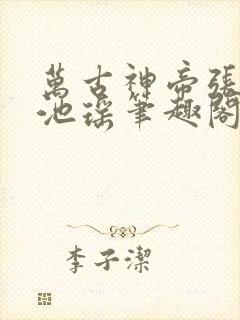 萬古神帝張
池瑤筆趣閣
李子潔